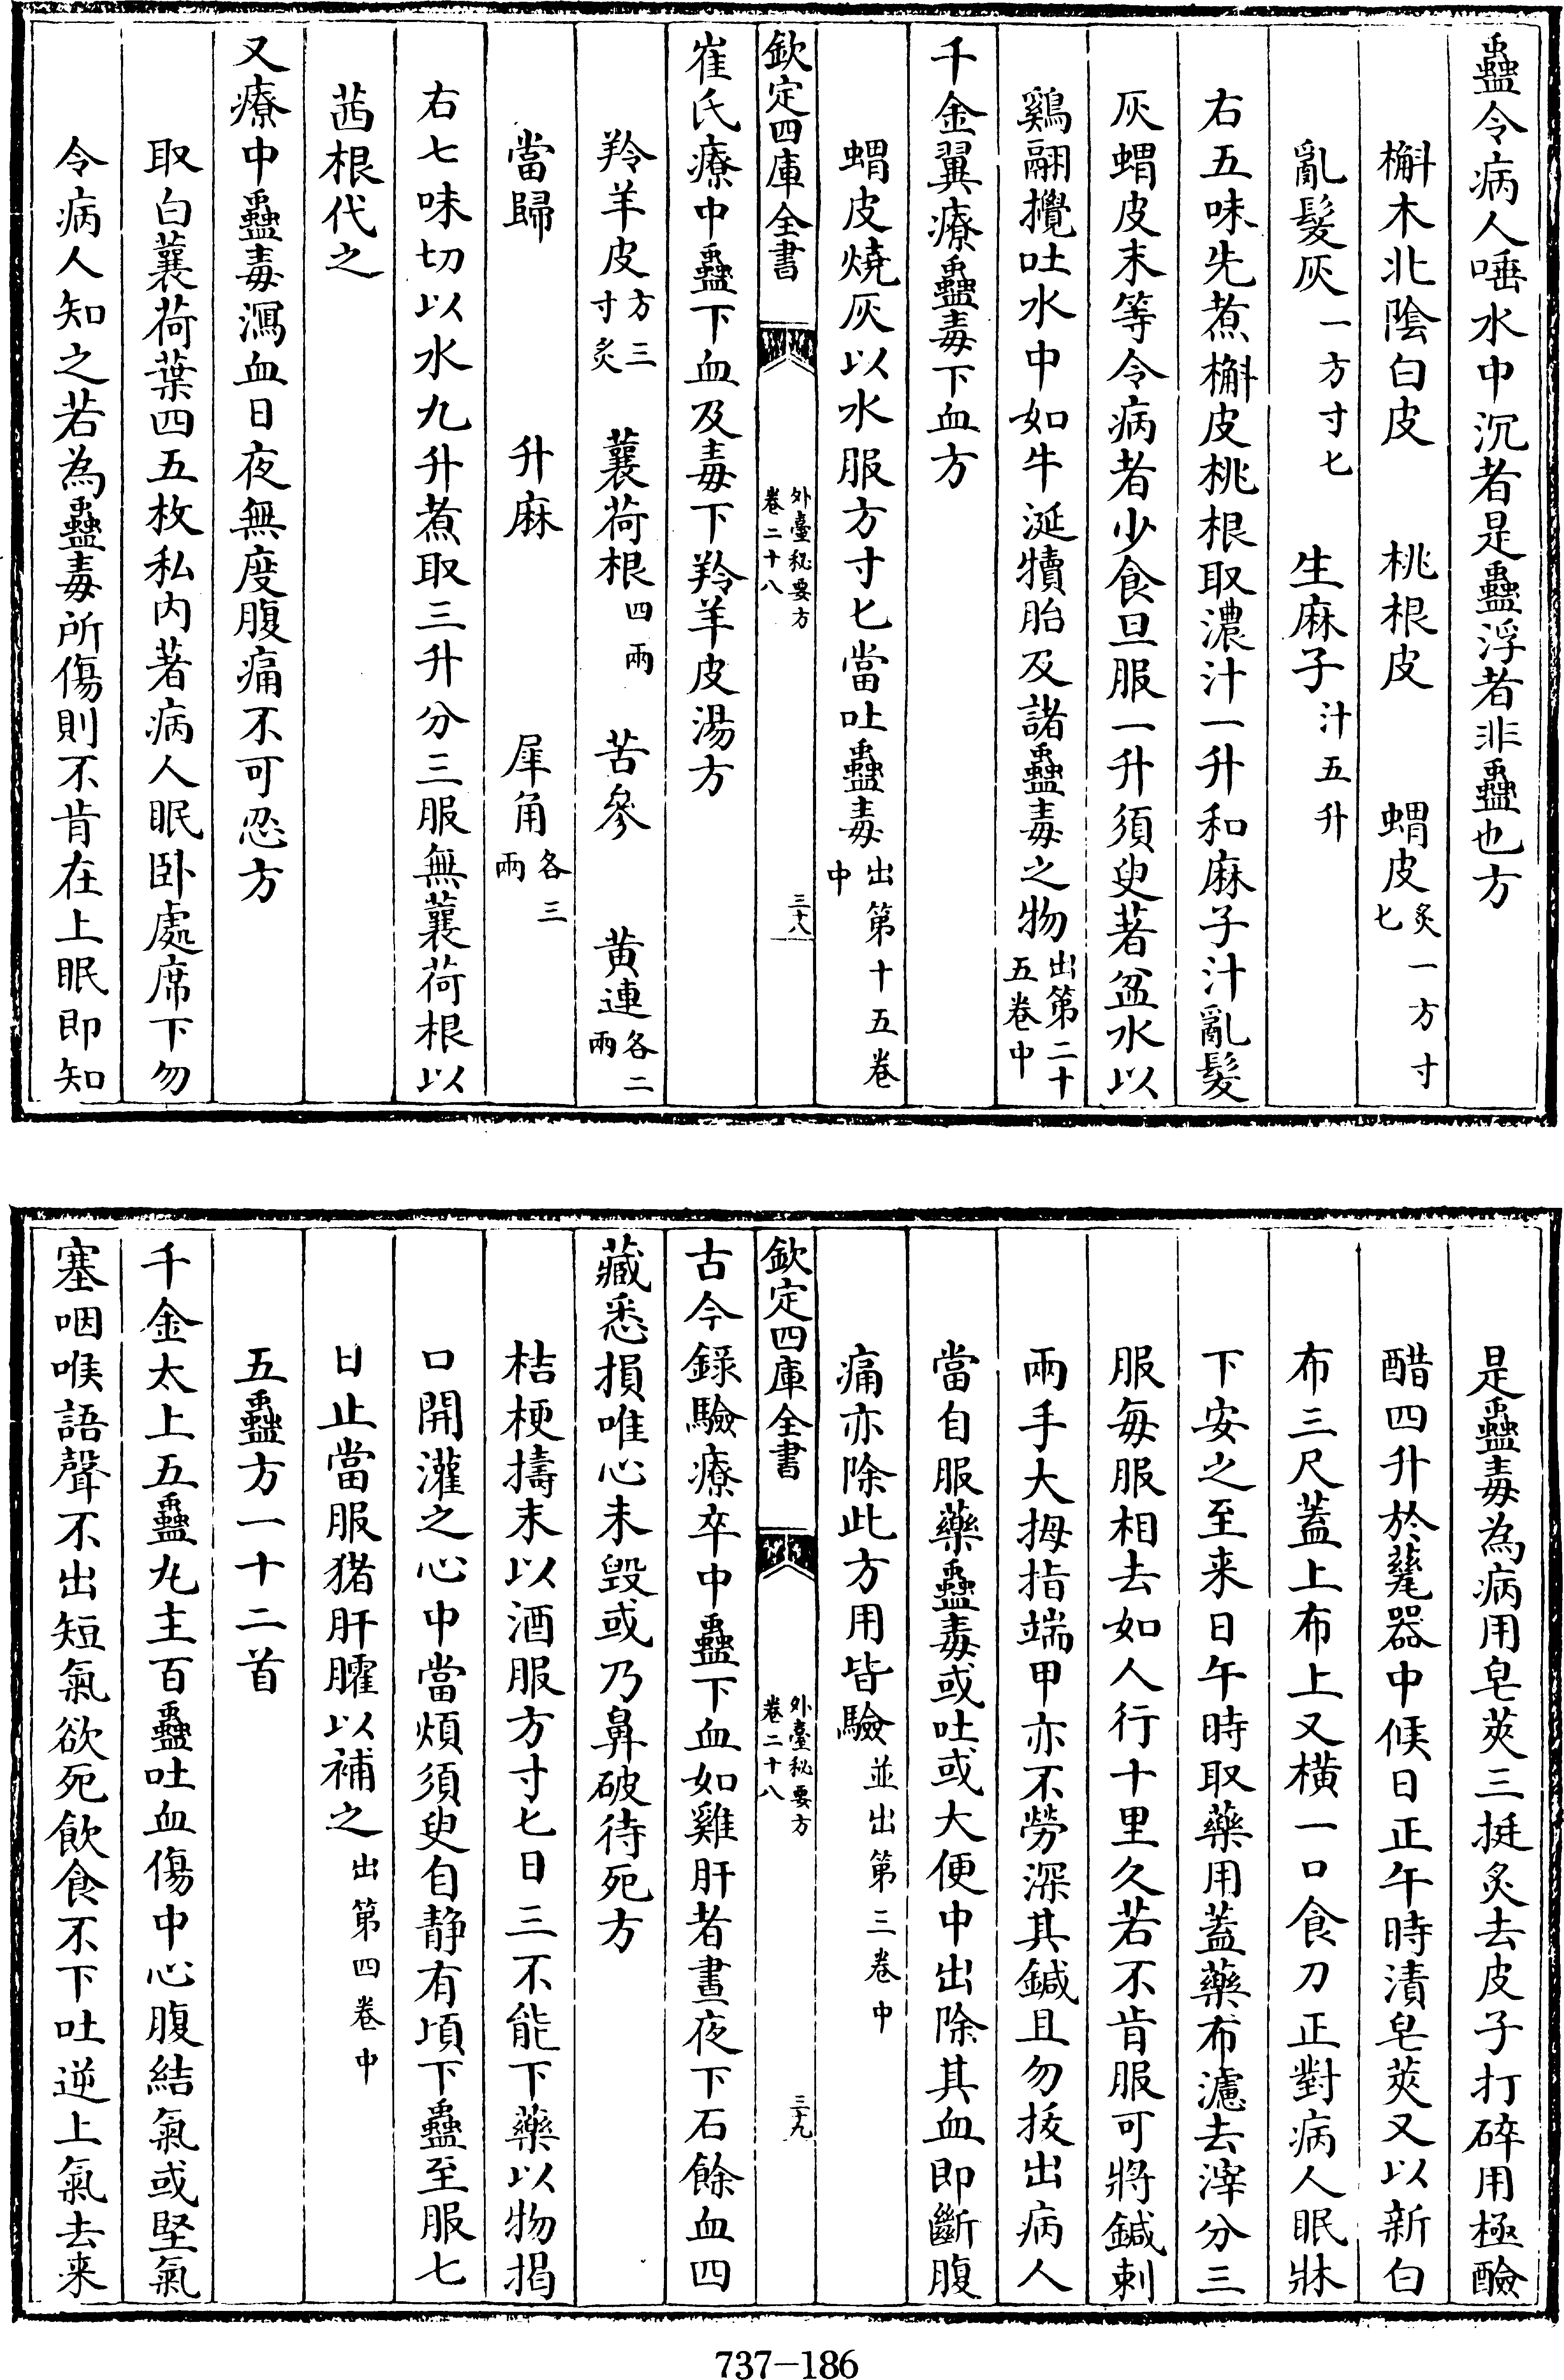 蠱令病人唾水中沉者是蠱浮者非蠱也方
槲木北陰白皮　桃根皮　蝟皮炙一方寸匕
亂髮灰一方寸匕　生麻子汁五升
右五味先煮槲皮桃根取濃汁一升和麻子汁亂髮
灰蝟皮末等令病者少食旦服一升須臾著盆水以
鷄翮攪吐水中如牛涎犢胎及諸蠱毒之物出第二十五卷中
千金翼療蠱毒下血方
蝟皮燒灰以水服方寸匕當吐蠱毒出第十五卷中
欽定四庫全書　外臺秘要方卷二十八　三十八
崔氏療中蠱下血及毒下羚羊皮湯方
羚羊皮方三寸炙　蘘荷根四兩　苦參　黄連各二兩
當歸　升麻　犀角各三兩
右七味切以水九升煮取三升分三服無蘘荷根以
茜根代之
又療中蠱毒瀉血日夜無度腹痛不可忍方
取白蘘荷葉四五枚私内著病人眠卧處席下勿
令病人知之若為蠱毒所傷則不肯在上眠即知
是蠱毒為病用皂莢三挺炙去皮子打碎用極醶
醋四升於甕器中候日正午時漬皂莢又以新白
布三尺蓋上布上又橫一口食刀正對病人眠牀
下安之至来日午時取藥用蓋藥布濾去滓分三
服每服相去如人行十里久若不肯服可將鍼刺
兩手大拇指端甲亦不勞深其鍼且勿拔出病人
當自服藥蠱毒或吐或大便中出除其血即斷腹
痛亦除此方用皆驗並出第三卷中
欽定四庫全書　外臺秘要方卷二十八　三十九
古今錄驗療卒中蠱下血如雞肝者晝夜下石餘血四
藏悉損唯心未毁或乃鼻破待死方
桔梗擣末以酒服方寸匕日三不能下藥以物揭
口開灌之心中當煩須臾自静有頃下蠱至服七
日止當服猪肝臛以補之出第四卷中
五蠱方一十二首
千金太上五蠱丸主百蠱吐血傷中心腹結氣或堅氣
塞咽喉語聲不出短氣欲死飲食不下吐逆上氣去来
737-186